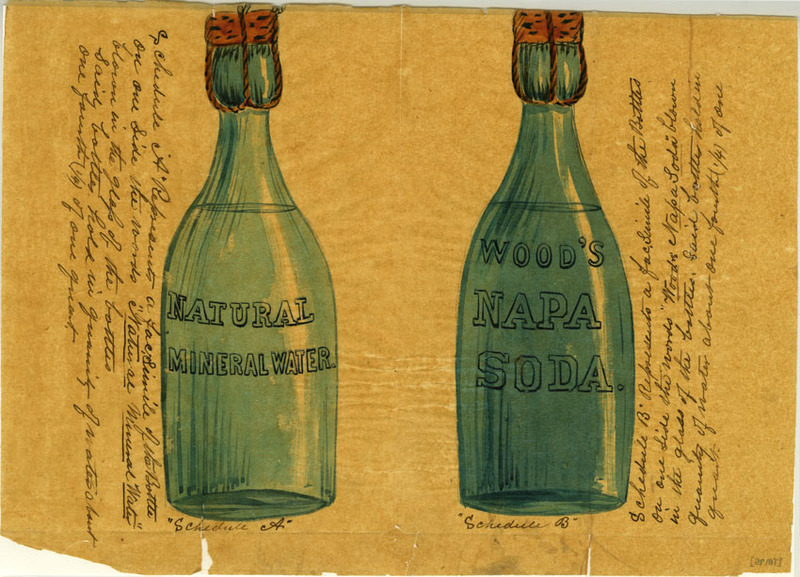 Schedule "A" Represents a fac, Simile of the Bottle
on one Side the words "Natural Mineral Water"
blown in the glass of the bottles
Said bottles hold in quanity of water about
one fourth (1/4) of one quart.
NATURAL
MINERAL WATER.
"Schedule A"
WOOD'S
NAPA
SODA.
"Schedule B"
Schedule B" Represents a fac, Simile of the Bottles
on one Side the words "Woods Napa Soda" blown
in the glass of the bottles. Said bottles hold in
quanity of water about one fourth (1/4) of one
quart.